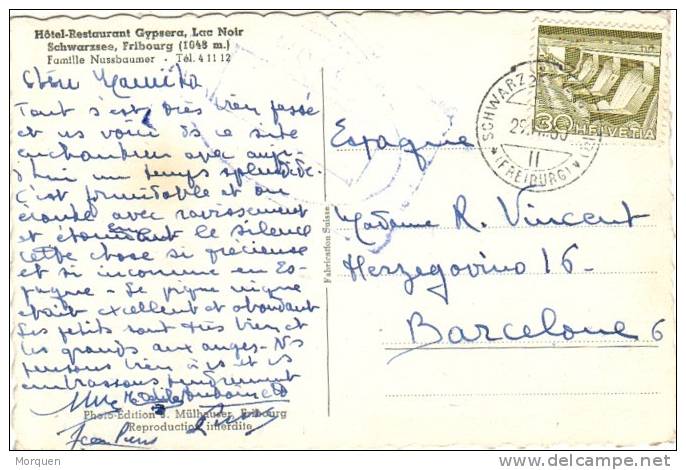 Hôtel-Restaurant Gypsera, Lac Noir
Schwarzsee, Fribourg (1048 m.)
Famille Nussbaumer - Tél. 4 11 12
Tout s'est très bien passé
et ns voici ds ce site
enchanteur avec aujour-
d'hui un temps splendide.
C'est formidable et on
écoute avec ravissement
et étonnement le silence
cette chose si précieuse
et si inconnue en Es-
pagne - Le pique nique
était excellent et abondant
Les petits sont très bien et
les grands aux anges - Ns
pensons bien à vs et vs
embrassons tendrement
Photo-Edition J. Mülhauser, Fribourg
Reproduction interdite
Jean Pierre
Fabrication Suisse
30 HELVETIA
SCHWARZSEE
II
(FREIBURG)
Espagne
Madame R. Vincent
Herzegovino 16-
Barcelone 6
Morquen
http://www.delcampe.net